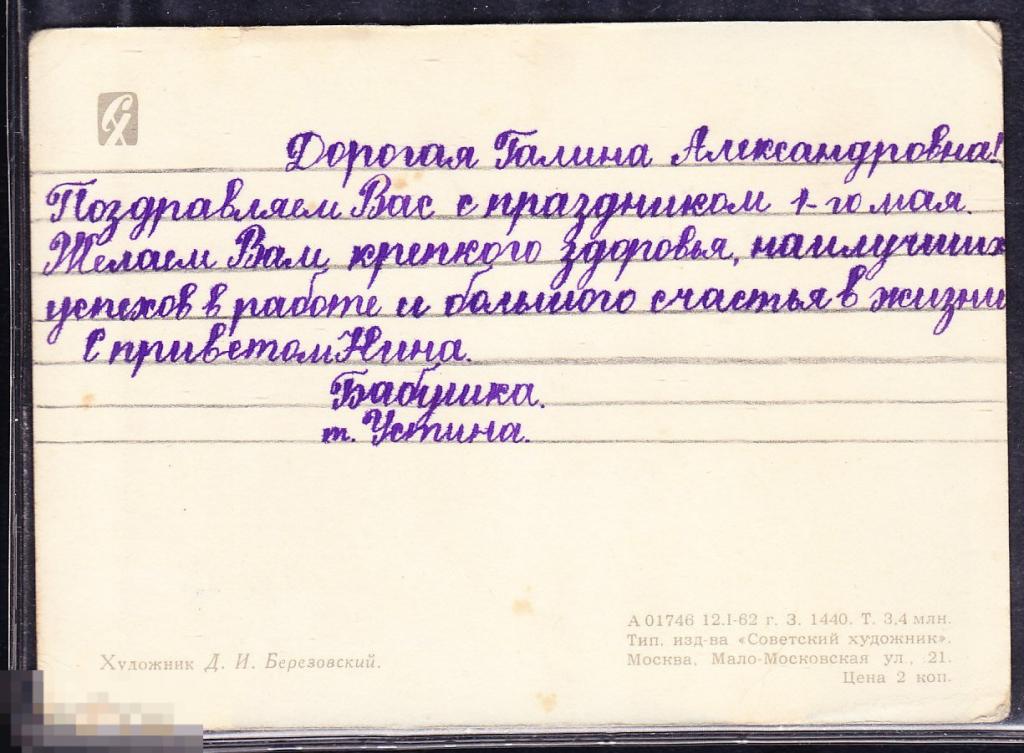 Дорогая Галина Александровна!
Поздравляем Вас с праздником 1-го мая.
Желаем Вам крепкого здоровья, наилучших
успехов в работе и большого счастья в жизни
С приветом Нина.
Бабушка.
т. Устина.
А 01746 12.I-62 г. З. 1440. Т. 3,4 млн.
Тип. изд-ва «Советский художник».
Москва, Мало-Московская ул., 21.
Цена 2 коп.
Художник Д. И. Березовский.